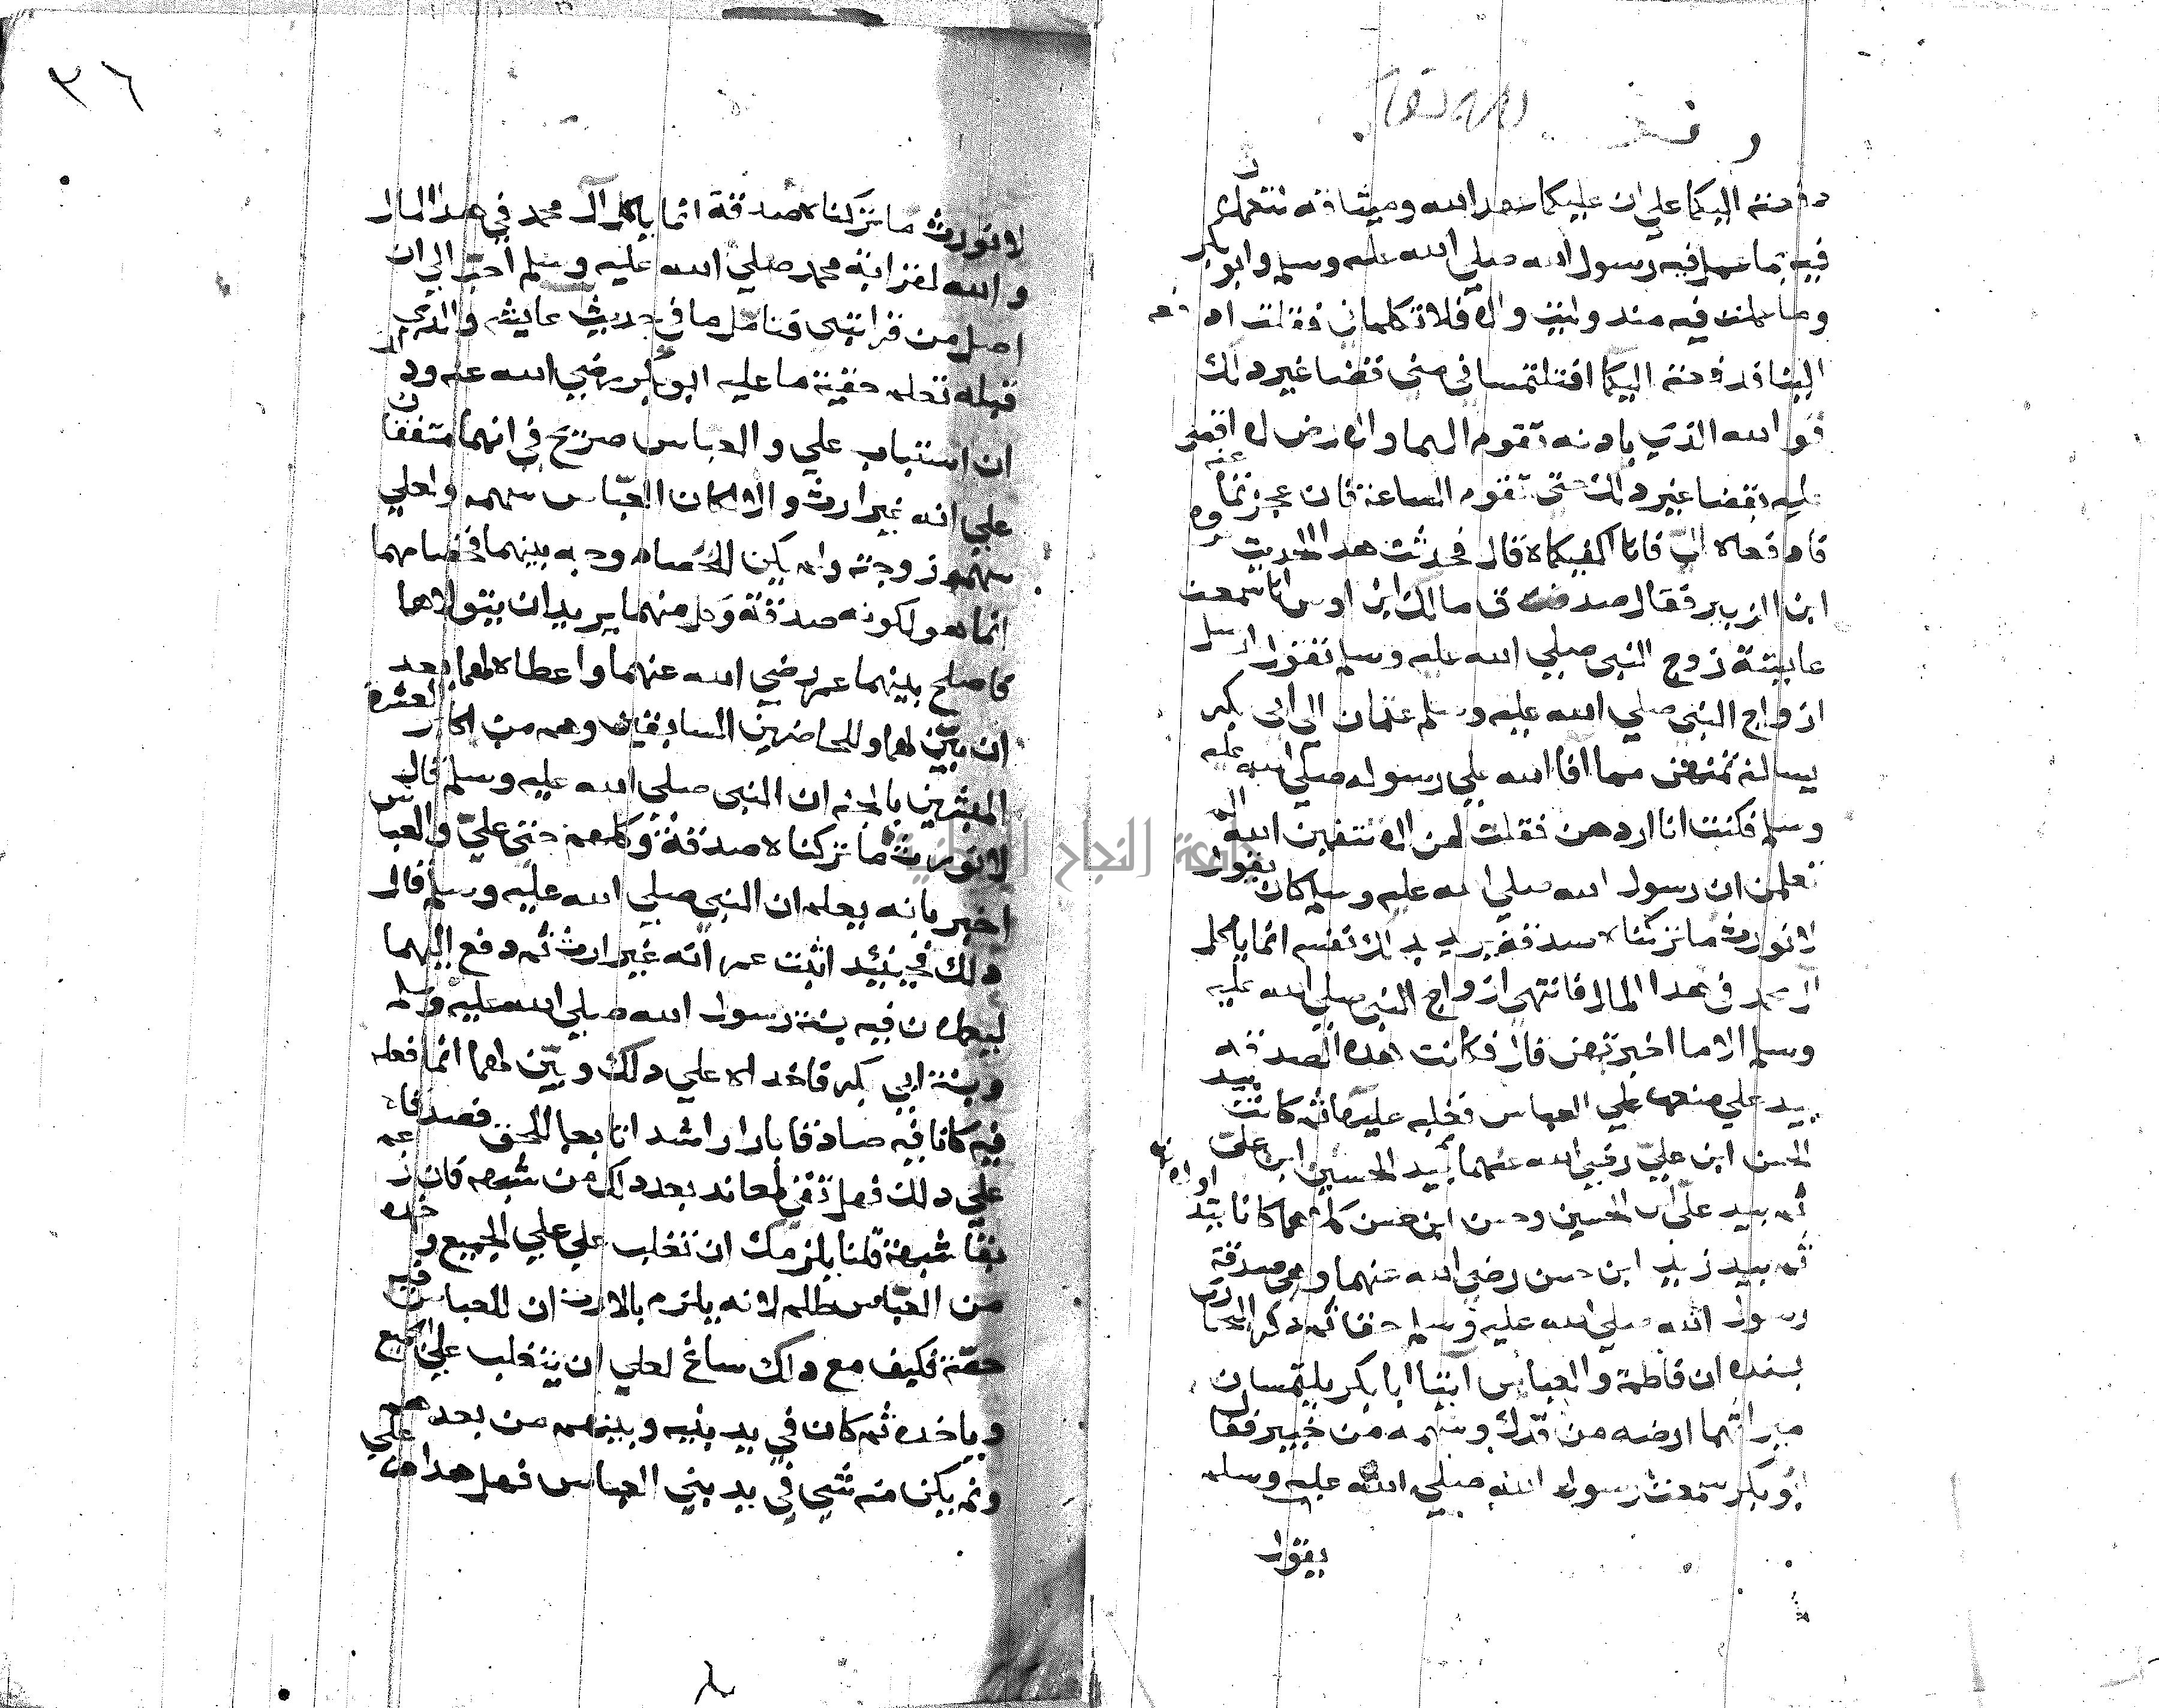 وقف لله تعالى
دفعته اليكما علي ان عليكما عهد الله وميثاقه لتعملان
فيه بما عمل فيه رسول الله صلي الله عليه وسلم وابو بكر
وما عملت فيه منذ وليت والا فلا تكلماني فقلتما ادفعه
الينا فدفعته اليكما افتلتمسا في مني قضا غير دلك
فوالله الذي بادنه تقوم السما والارض لا اقضي
عليه بقضا غير دلك حتى تقوم الساعة فان عجزتما عنه
فادفعاه الي فانا اكفيكماه قال فحدثت هدا الحديث عروه
ابن الزبير فقال صدق مالك ابن اوس انا سمعت
عايشة زوج النبي صلي الله عليه وسلم تقول ارسل
ازواج النبي صلي الله عليه وسلم عثمان الى ابى بكر
يسالنه ثمنهن مما افا الله علي رسوله صلي الله عليه
وسلم فكنت انا اردهن فقلت لهن الا تتقين الله الم
تعلمن ان رسول الله صلي الله عليه وسلم كان يقول
لا نورث ما تركناه صدقة يريد بدلك نفسه انما ياكل
آل محمد في هدا المال فانتهى ازواج النبي صلي الله عليه
وسلم الا ما اخبرتهن قال فكانت هده الصدقه
بيد علي منعها علي العباس فغلبه عليها ثم كانت بيد
الحسن ابن علي رضي الله عنهما ثم بيد الحسين ابن علي
ثم بيد علي ابن الحسين وحسن ابن حسن كلاهما كانا يتداولانها
ثم بيد زيد ابن حسن رضي الله عنهما وهي صدقة
رسول الله صلي الله عليه وسلم حقا ثم دكر البخاري
بسنده ان فاطمة والعباس اتيا ابا بكر يلتمسان
ميراثهما ارضه من فدك وسهمه من خيبر فقال
ابو بكر سمعت رسول الله صلي الله عليه وسلم
يقول
٣٦
لا نورث ما تركناه صدقة انما ياكل آل محمد في هدا المال
والله لقرابة محمد صلي الله عليه وسلم احب الي ان
اصل من قرابتي فتامل ما في حديث عايشه والدي
قبله تعلم حقية ما عليه ابو بكر رضي الله عنه ودلك
ان استباب علي والعباس صريح في انهما متفقان
علي انه غير ارث والا لكان للعباس سهمه ولعلي
سهم زوجته ولم يكن للخصام وجه بينهما فخصامهما
انما هو لكونه صدقة وكل منهما يريد ان يتولاها
فاصلح بينهما عمر رضي الله عنهما واعطاه لهما بعد
ان بيّن لهما وللحاضرين السابقين وهم من اكابر العشرة
المبشرين بالجنه ان النبي صلي الله عليه وسلم قال
لا نورث ما تركناه صدقة وكلهم حتى علي والعباس
اخبر بانه يعلم ان النبي صلي الله عليه وسلم قال
دلك فحينئد اثبت عمر انه غير ارث ثم دفع اليهما
ليعملان فيه بسنة رسول الله صلي الله عليه وسلم
وبسنة ابي بكر فاخداه علي دلك وبيّن لهما انما فعله
فيه كانا فيه صادقا بارا راشدا تابعا للحق فصدقاه
علي دلك فهل بقي لمعاند بعد دلك من شبهه فان زعم
بقا شبهة قلنا يلزمك ان تغلب علي علي الجميع واخده
من العباس ظلم لانه يلزم بالارث ان للعباس فيه
حصة فكيف مع داك ساغ لعلي ان يتغلب علي الجميع
وياخده ثم كان في يد بنيه وبنيهم من بعدهم
ولم يكن منه شي في يد بني العباس فهل هدا من علي
جامعة النجاح الوطنية